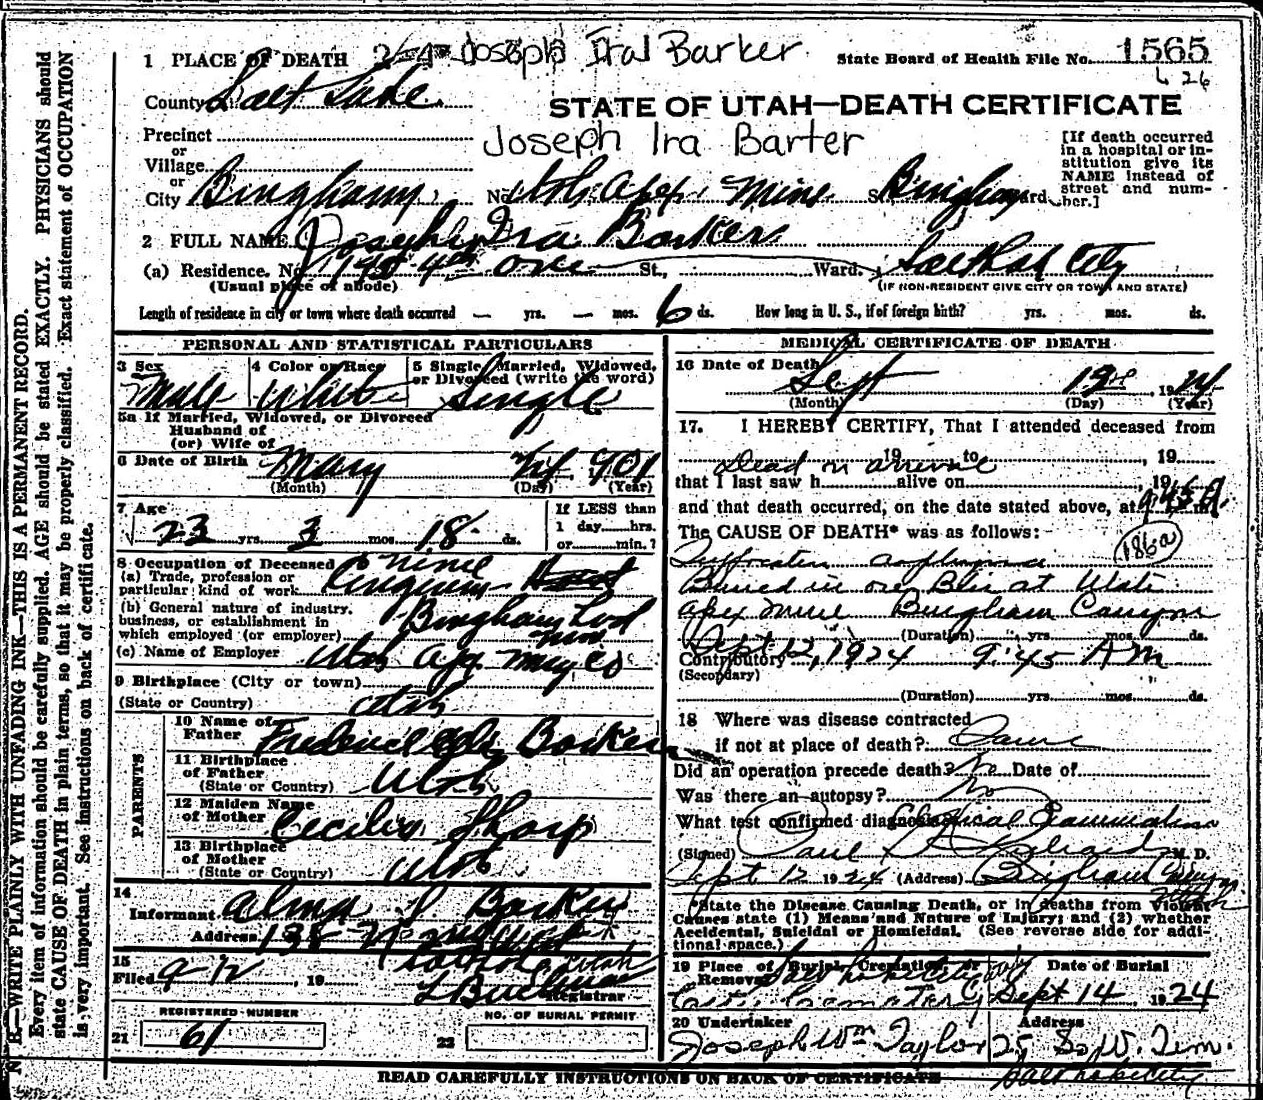 1 PLACE OF DEATH Joseph Ira Barker State Board of Health File No. 1565
26
County Salt Lake
STATE OF UTAH—DEATH CERTIFICATE
Precinct
or
Village
or
City Bingham No. Utah Apex Mine St. Bingham Ward
Joseph Ira Barter
[If death occurred
in a hospital or in-
stitution give its
NAME instead of
street and num-
ber.]
2 FULL NAME Joseph Ira Barker
(a) Residence. No. 4th ave St., Ward. Salt Lake City
(Usual place of abode) (IF NON-RESIDENT GIVE CITY OR TOWN AND STATE)
Length of residence in city or town where death occurred — yrs. — mos. 6 ds. How long in U. S., if of foreign birth? yrs. mos. ds.
PERSONAL AND STATISTICAL PARTICULARS
3 Sex Male
4 Color or Race White
5 Single, Married, Widowed, or Divorced (write the word) Single
5a If Married, Widowed, or Divorced
Husband of
(or) Wife of
6 Date of Birth May 24 1901
(Month) (Day) (Year)
7 Age
23 yrs. 3 mos. 18 ds.
If LESS than
1 day hrs.
or min.?
8 Occupation of Deceased
(a) Trade, profession or
particular kind of work
(b) General nature of industry,
business, or establishment in
which employed (or employer) Bingham
(c) Name of Employer Utah Apex Co
9 Birthplace (City or town)
(State or Country) Utah
PARENTS
10 Name of
Father Frederick Barker
11 Birthplace
of Father
(State or Country) Utah
12 Maiden Name
of Mother Cecilia Sharp
13 Birthplace
of Mother
(State or Country) Utah
14
Informant Alma Barker
Address 138
Utah
15
Filed 9-12, 19
Registrar
REGISTERED NUMBER
21 61
NO. OF BURIAL PERMIT
22
MEDICAL CERTIFICATE OF DEATH
16 Date of Death Sept 12 1924
(Month) (Day) (Year)
17. I HEREBY CERTIFY, That I attended deceased from
Dead on arrival 19 to , 19
that I last saw h alive on , 19
and that death occurred, on the date stated above, at 9:45 A m.
The CAUSE OF DEATH* was as follows: 186a
Buried in ore Bin at Utah
Apex mine Bingham Canyon
(Duration) yrs. mos. ds.
Sept 12, 1924 9:45 AM
Contributory
(Secondary)
(Duration) yrs. mos. ds.
18 Where was disease contracted
if not at place of death? Same
Did an operation precede death? No Date of
Was there an autopsy? No
What test confirmed diagnosis? Examination
(Signed) Paul M. D.
Sept 12 1924 (Address) Bingham Canyon
*State the Disease Causing Death, or in deaths from Violent
Causes state (1) Means and Nature of Injury; and (2) whether
Accidental, Suicidal or Homicidal. (See reverse side for addi-
tional space.)
19 Place of Burial, Cremation or
Removal Salt Lake City
City Cemetery
Date of Burial
Sept 14, 1924
20 Undertaker
Joseph Wm Taylor
Address
25 So. W. Tem.
Salt Lake City
READ CAREFULLY INSTRUCTIONS ON BACK OF CERTIFICATE
N. B.—WRITE PLAINLY WITH UNFADING INK—THIS IS A PERMANENT RECORD.
Every item of information should be carefully supplied. AGE should be stated EXACTLY. PHYSICIANS should
state CAUSE OF DEATH in plain terms, so that it may be properly classified. Exact statement of OCCUPATION
is very important. See instructions on back of certificate.